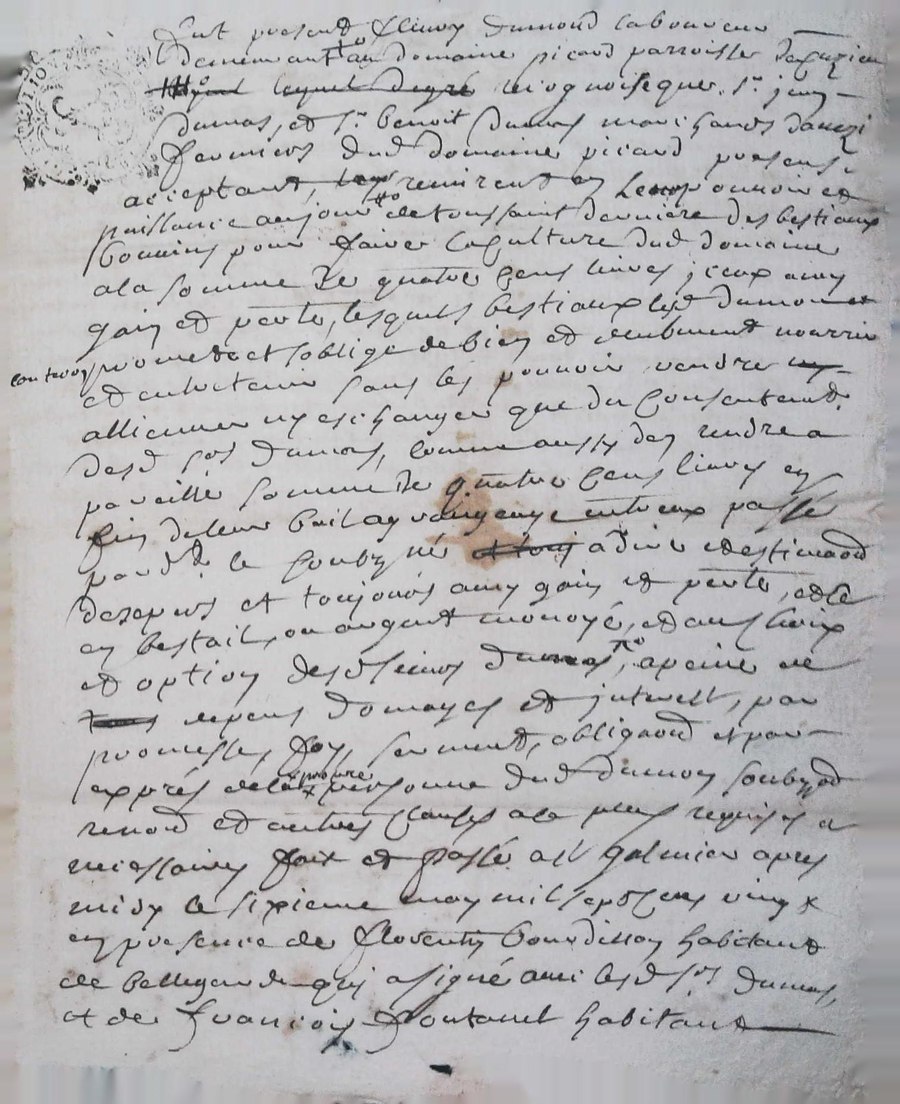 Fut present fleury dumond laboureur
demeurant au domaine picard parroisse de cuzieu
lequel de gré recognoist que sr jean
dumas, et sr benoit dumas marchands d'auezi
fermiers dud domaine picard presens
acceptant, remirent en pouuoir et
puissance au jour de toussaint derniere des bestiaux
bouuins pour faire la culture dud domaine
a la somme de quatre cens liures, iceux a my
gain et perte, lesquels bestiaux led dumond
promet et s'oblige de bien et deubment nourrir
et entretenir sans les pouuoir vendre
alliener ny eschanger que du consentemt
desd srs dumas, comme aussy den rendre a
pareille somme de quatre cens liures en
fin de leur bail a entreux passé
pard le soubzné a dire et estimaon
d'expers et toujours a my gain et perte, et ce
en bestail ou argent monoyé, et au choix
et option desd sieurs dumas, a peine de
depens domages et interest, par
promesses, foy, serment, obligaon et par
exprés de la propre personne dud dumon soubzmon
renon et autres clauses a ce plus requises et
necessaires fait et passé a st galmier apres
midy le sixieme may mil sept cens vingt
en presence de florentin bourdisson habitant
de bellegarde qui a signé auec lesd srs dumas,
et de francois fontanel habitant